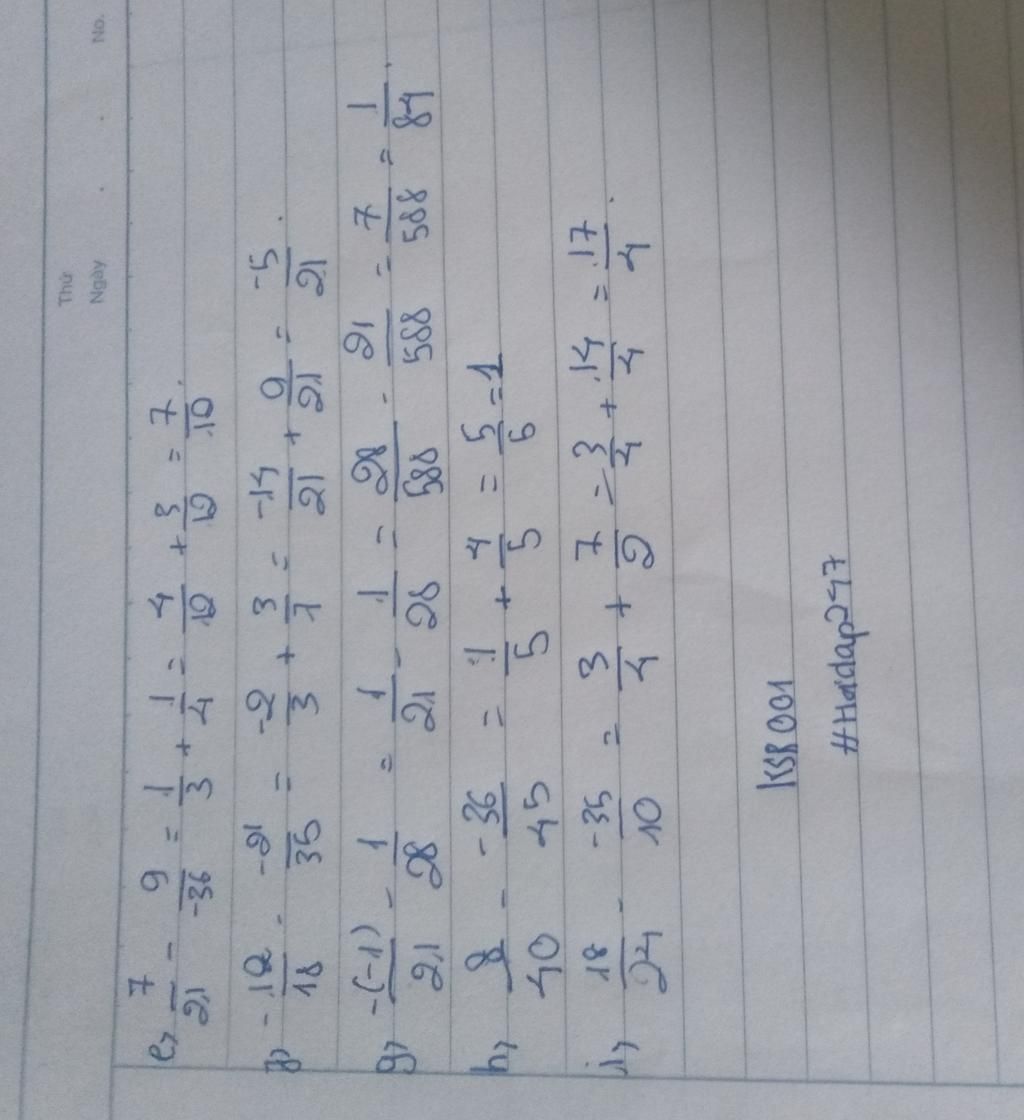 No.
Thứ
Ngày
e, 7/21 - 9/-36 = 1/3 + 1/4 = 4/12 + 3/12 = 7/12
f, -12/18 - -21/35 = -2/3 + 3/7 = -14/21 + 9/21 = -5/21
g, -(-1)/21 - 1/28 = 1/21 - 1/28 = 28/588 - 21/588 = 7/588 = 1/84
h, 8/40 - -36/45 = 1/5 + 4/5 = 5/6 = 1
i, 18/24 - -35/10 = 3/4 + 7/2 = 3/4 + 14/4 = 17/4
KSR001
#Hoidap247